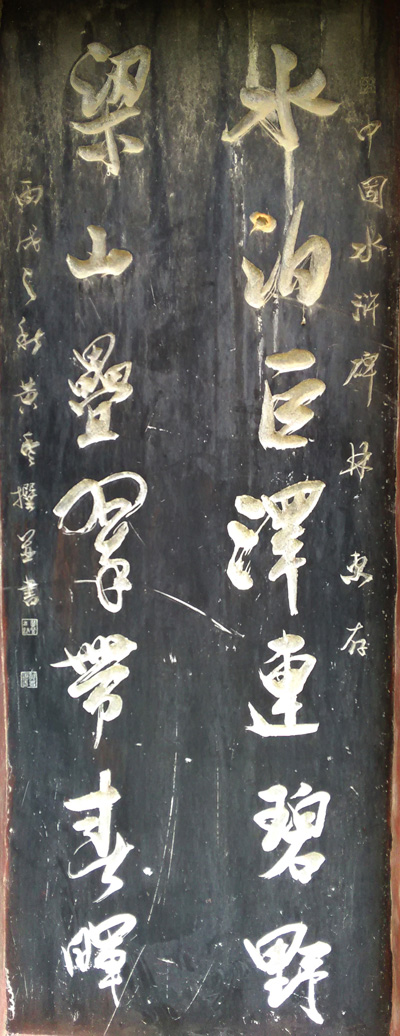 中国水浒碑林 惠存
水泊巨澤連碧野
梁山疊翠帶春暉
丙戌之秋黄 撰並書